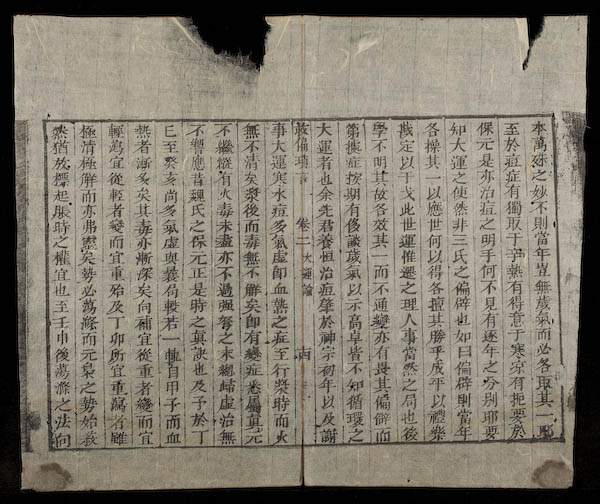 本萬殊之妙不則當年豈無歲氣而必各取其一耶
至於痘症有獨取于辛熱有得意于寒涼有扼要於
保元是亦治痘之明手何不見有逐年之分別耶要
知大運之使然非三氏之偏辟也如曰偏辟則當年
各操其一以應世何以得各擅其勝乎成平以禮樂
戡定以干戈此世運推遷之理人事當然之局也後
學不明其故各效其一而不通變亦有畏其偏僻而
第摭症按期有侈談歲氣以示高卓皆不知循環之
大運者也余先君養恒治痘肇於神宗初年以及謝
救偏瑣言 卷二 大運論 四
事大運寒水痘多氣虛即血熱之症至行漿時而火
無不清矣漿後而毒無不解矣即有變症悉屬真元
不繼縱有火毒未盡亦不過强弩之末總結虛治無
不響應昔魏氏之保元正是時之真訣也及子於丁
巳至癸亥尚多氣虛與養較若一軌自甲子而血
熱者漸多矣其毒亦漸深矣向補宜從重者變而宜
輕瀉宜從輕者變而宜重殆及丁卯所宜重瀉者雖
極清極解而亦弗靈矣勢必蕩滌而元梟之勢始殺
然猶放標起脹時之權宜也至壬申後蕩滌之法向